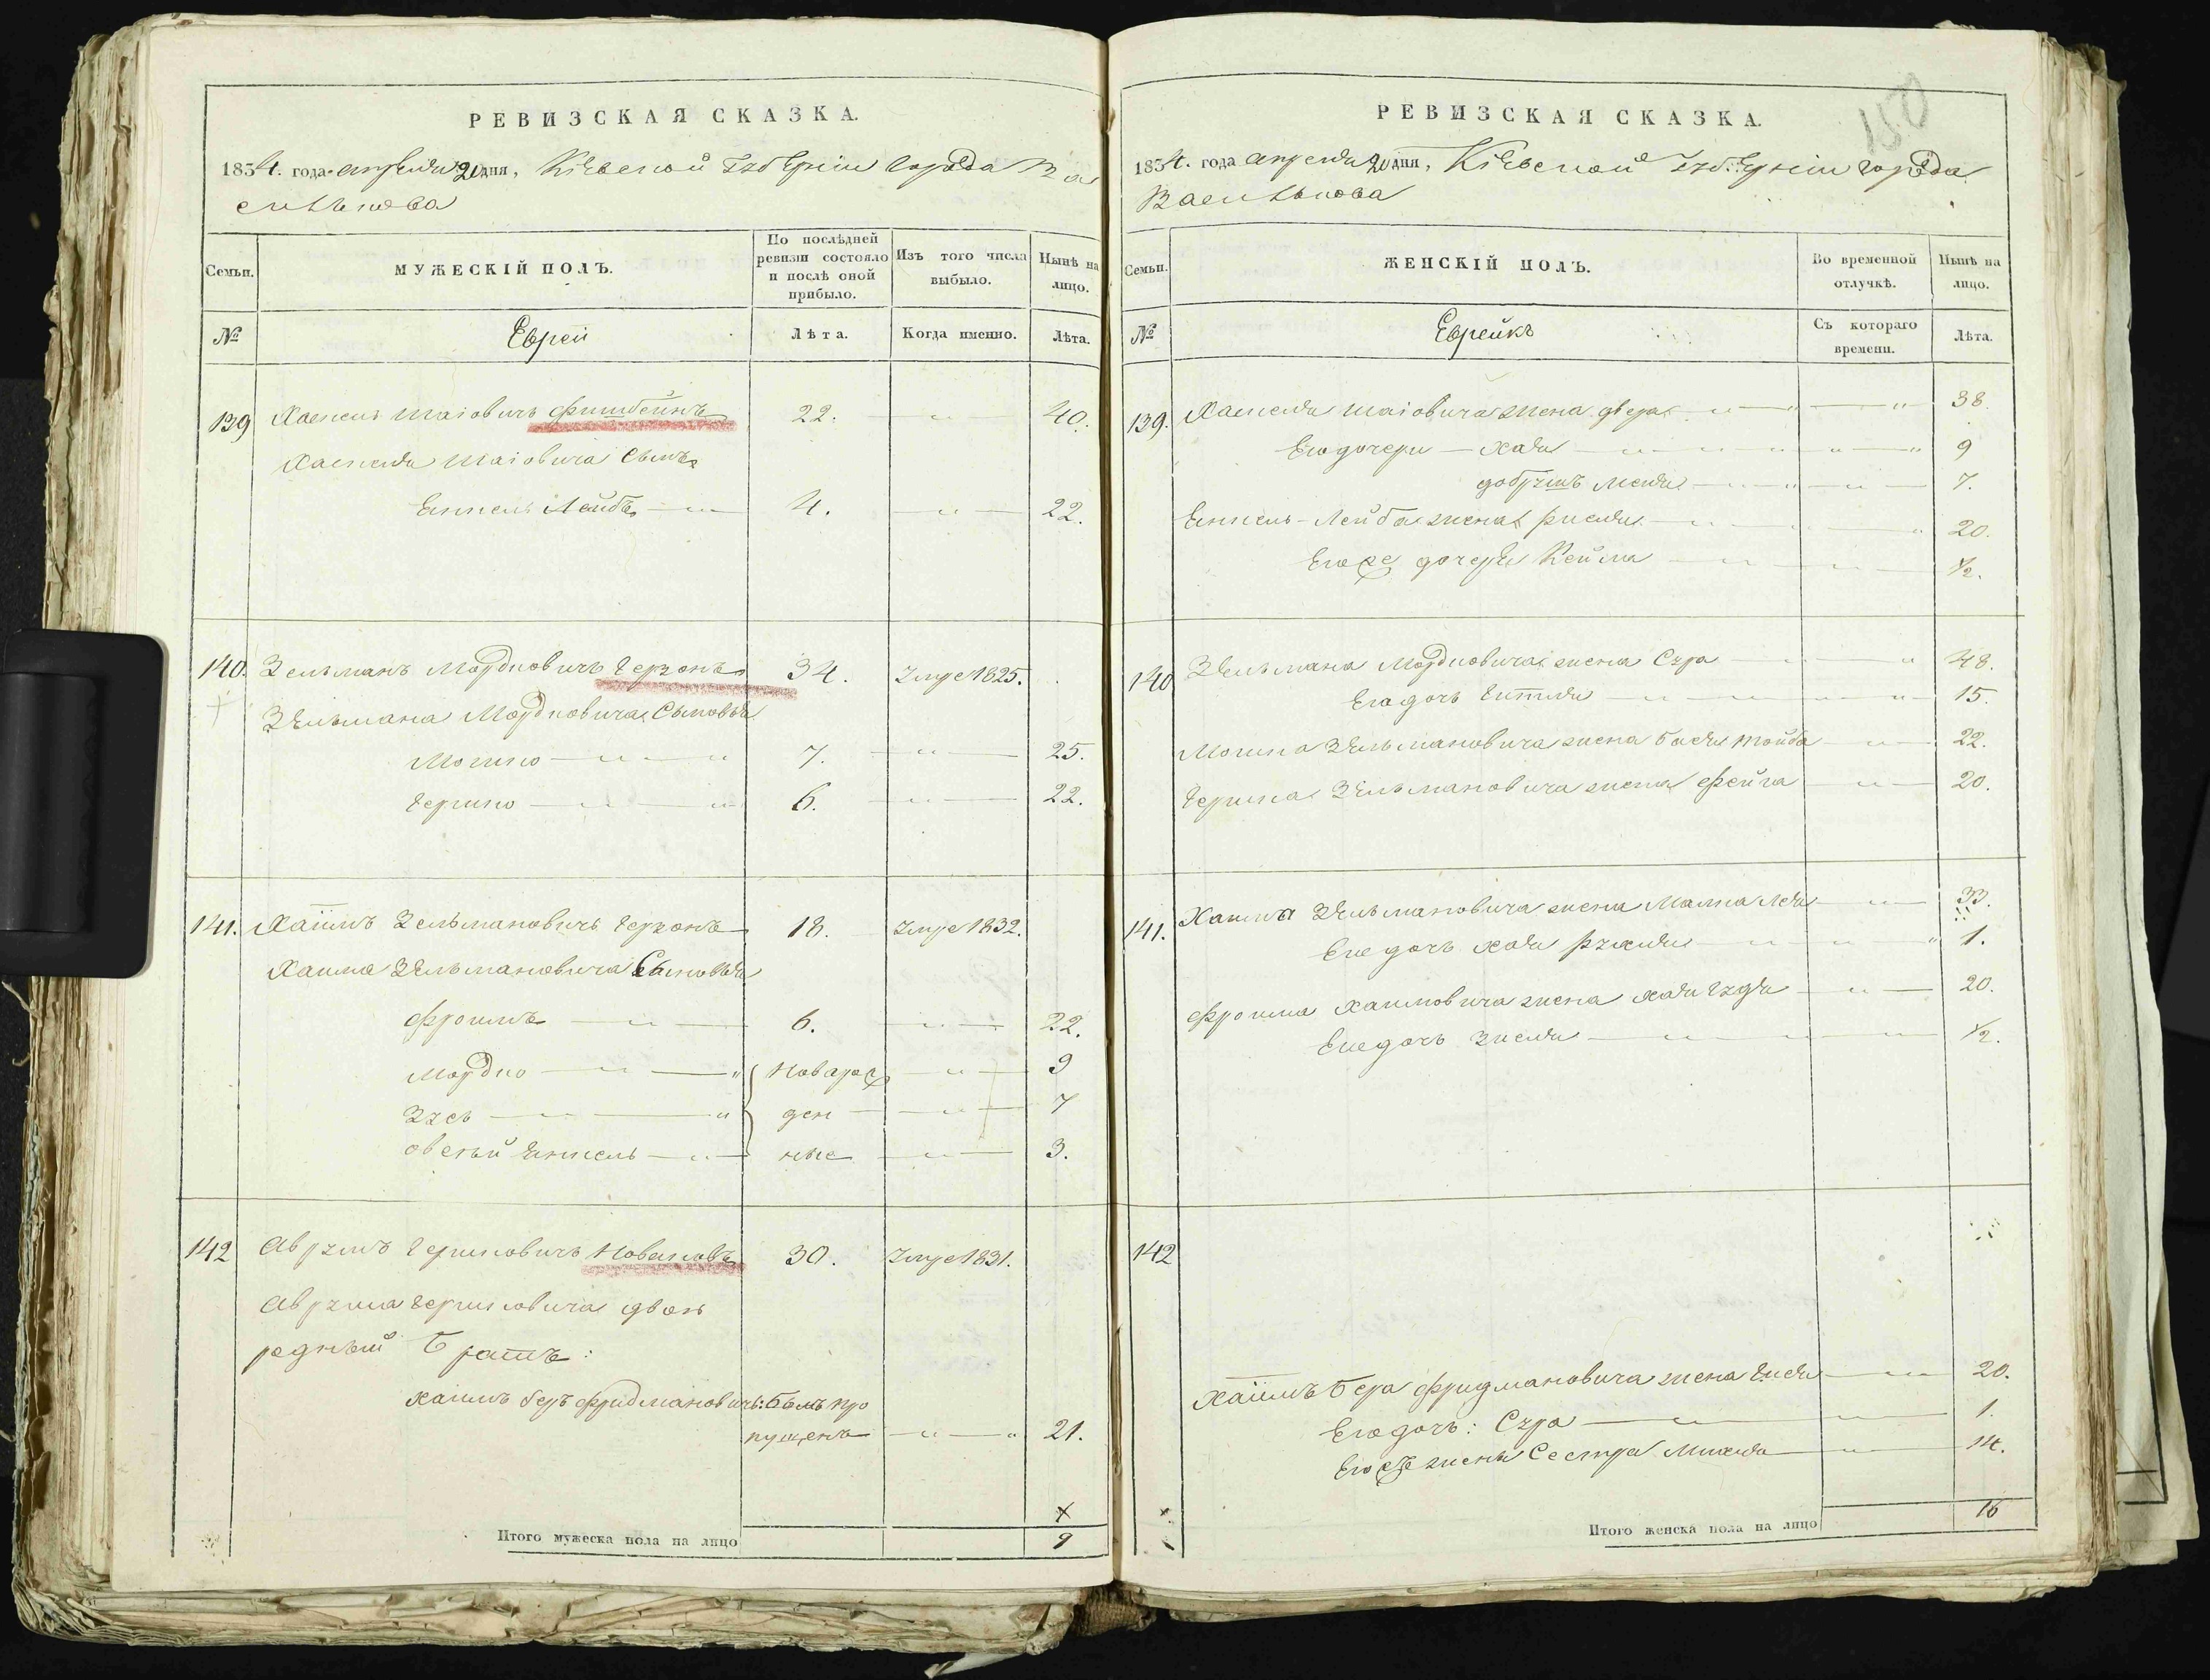 РЕВИЗСКАЯ СКАЗКА.
1834. года апреля 20 дня, Кіевской Губерніи города Ва
силькова
Семьи.
МУЖЕСКІЙ ПОЛЪ.
По послѣдней ревизіи состояло и послѣ оной прибыло.
Изъ того числа выбыло.
Нынѣ на лицо.
№
Еврей
Лѣта.
Когда именно.
Лѣта.
139 Хаскель Шаіовичъ Фишбейнъ 22. 40.
Хаскеля Шаіовича сынъ
Еникель Лейбъ 4. 22.
140. Зельманъ Мордковичъ Герзонъ 34. Умре 1825.
Зельмана Мордковича сыновья
Мошко 7. 25.
Гершко 6. 22.
141. Хаимъ Зельмановичъ Герзонъ 18. Умре 1832.
Хаима Зельмановича Сыновья
Фроимъ 6. 22.
Мордко новарож 9
Зусь ден 7
Овсѣй Еникель ные 3.
142 Аврумъ Гершковичъ Новаковъ 30. Умре 1831.
Аврума Гершковича двою
родный Братъ:
Хаимъ Беръ Фридмановичъ: былъ про
пущенъ 21.
Итого мужеска пола на лицо 9
РЕВИЗСКАЯ СКАЗКА.
150
1834. года апреля 20 дня, Кіевской Губерніи города
Василькова
Семьи.
ЖЕНСКІЙ ПОЛЪ.
Во временной отлучкѣ.
Нынѣ на лицо.
№
Еврейкъ
Съ котораго времени.
Лѣта.
139. Хаскеля Шаіовича жена Двера 38.
Его дочери Хая 9
Добрушъ Меня 7.
Еникель-Лейба жена Рисля 20.
Его же дочеръ Кейла ½.
140 Зельмана Мордковича жена Сура 48.
Его дочь Гитля 15.
Мошка Зельмановича жена Бася Тойба 22.
Гершка Зельмановича жена Фейга 20.
141. Хаима Зельмановича жена Малка Лея 33.
Его дочь Хая Рухля 1.
Фроима Хаимовича жена Хая Гудя 20.
Его дочь Зисля ½.
142
Хаимъ Бера Фридмановича жена 20.
Его дочь: Сура 1.
Его же жены Сестра Михля 14.
Итого женска пола на лицо 16